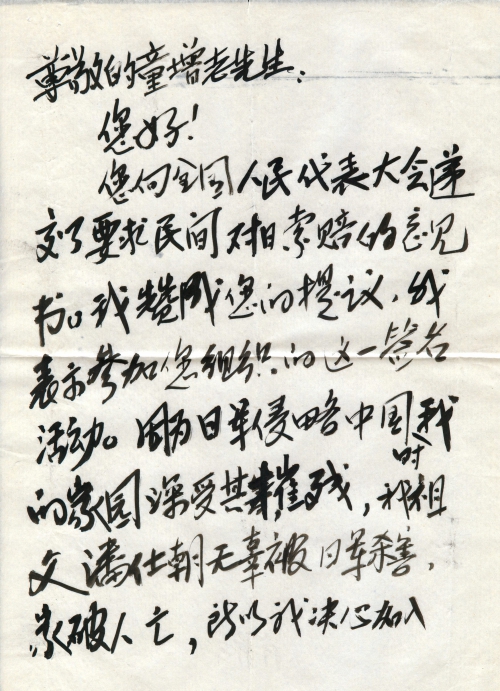 尊敬的童增老先生：
您好！
您向全国人民代表大会递
交了要求民间对日索赔的意见
书。我赞成您的提议，我
表示参加您组织的这一签名
活动。因为日军侵略中国时我
的家园深受其摧残，我祖
父潘仕朝无辜被日军杀害，
家破人亡，所以我决心加入